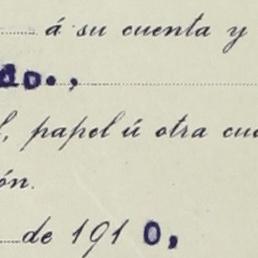 á su cuenta y
do.,
l, papel ú otra cu
ón.
de 191 0,